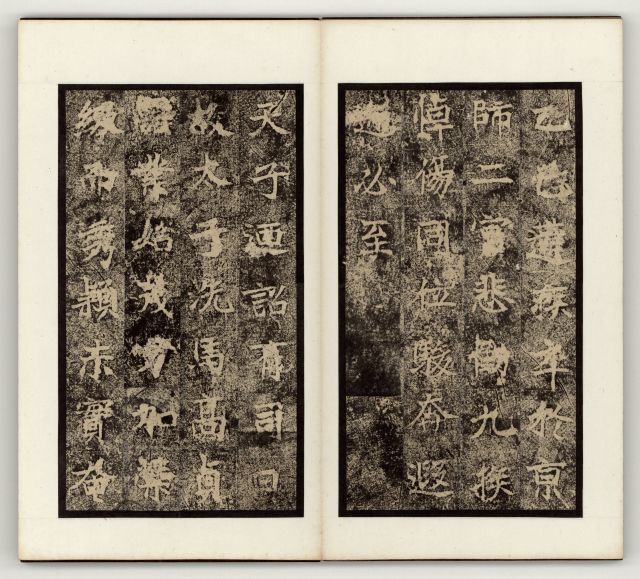 乙巳遘疾卒於亰
師二宮悲慟九族
悼傷同位駿奔遐
邇必至
天子迺詔有司曰
故太子洗馬高貞
器業始茂方加榮
級而秀穎未實奄